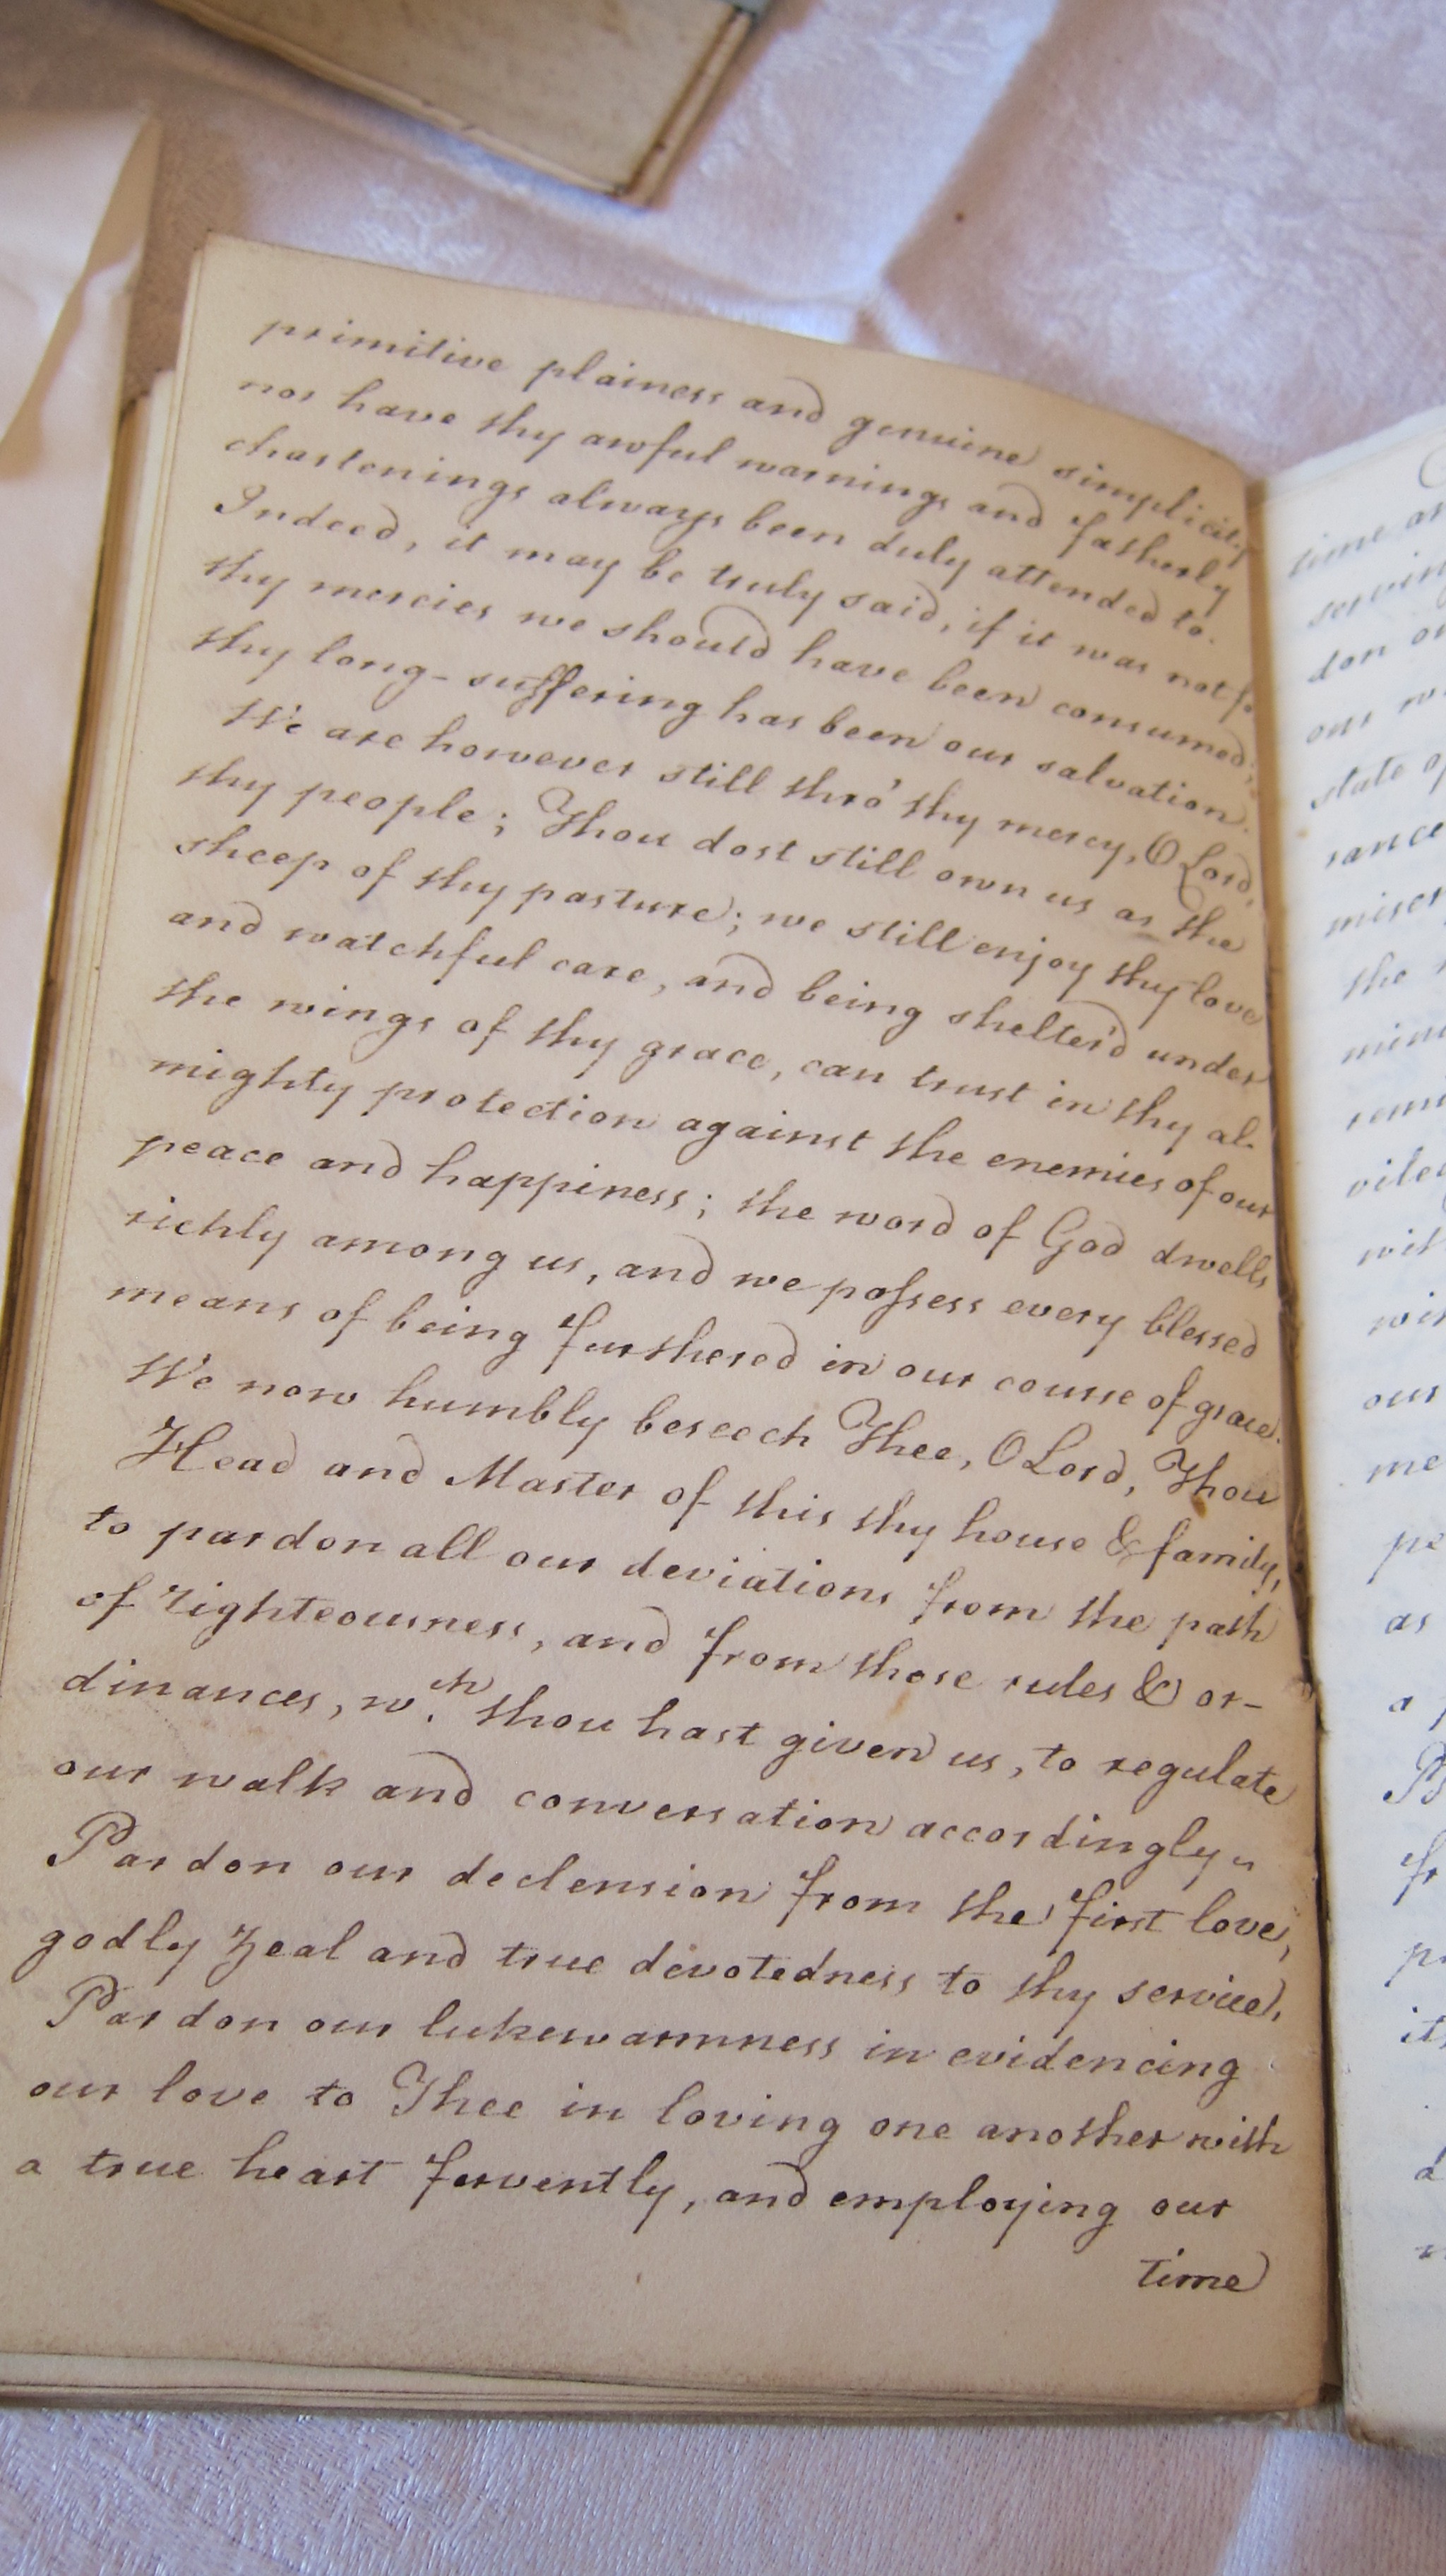 primitive plainess and genuine simplicity
nor have thy awful warnings and fatherly
chastenings always been duly attended to.
Indeed, it may be truly said, if it was not fo
thy mercies we should have been consumed;
thy long-suffering has been our salvation.
We are however still thro' thy mercy, O Lord,
thy people; Thou dost still own us as the
sheep of thy pasture; we still enjoy thy love
and watchful care, and being shelter'd under
the wings of thy grace, can trust in thy al-
mighty protection against the enemies of our
peace and happiness; the word of God dwells
richly among us, and we possess every blessed
means of being furthered in our course of grace.
We now humbly beseech Thee, O Lord, Thou
Head and Master of this thy house & family,
to pardon all our deviations from the path
of righteousness, and from those rules & or-
dinances, wch. thou hast given us, to regulate
our walk and conversation accordingly.
Pardon our declension from the first love,
godly zeal and true devotedness to thy service,
Pardon our lukewarmness in evidencing
our love to Thee in loving one another with
a true heart fervently, and employing our
time
time an
serving
don ou
our
state of
rance
miser
the
vile
wit
our
me
pe
as
a
fr